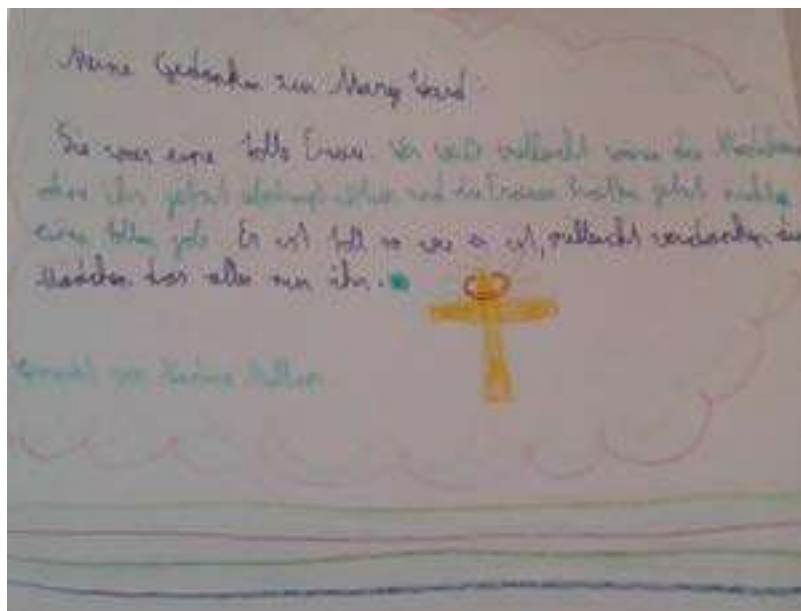 Meine Gedanken zu Mary Ward:
Sie war eine tolle Frau. Wer weiß vielleicht wären die Mädchen
ohne ihr jetzt und die Frauen hätten jetzt nicht
einen tollen job. Es ist toll so wie es ist, vielleicht verdanken die
Mädchen das alles nur ihr.
Gemacht von